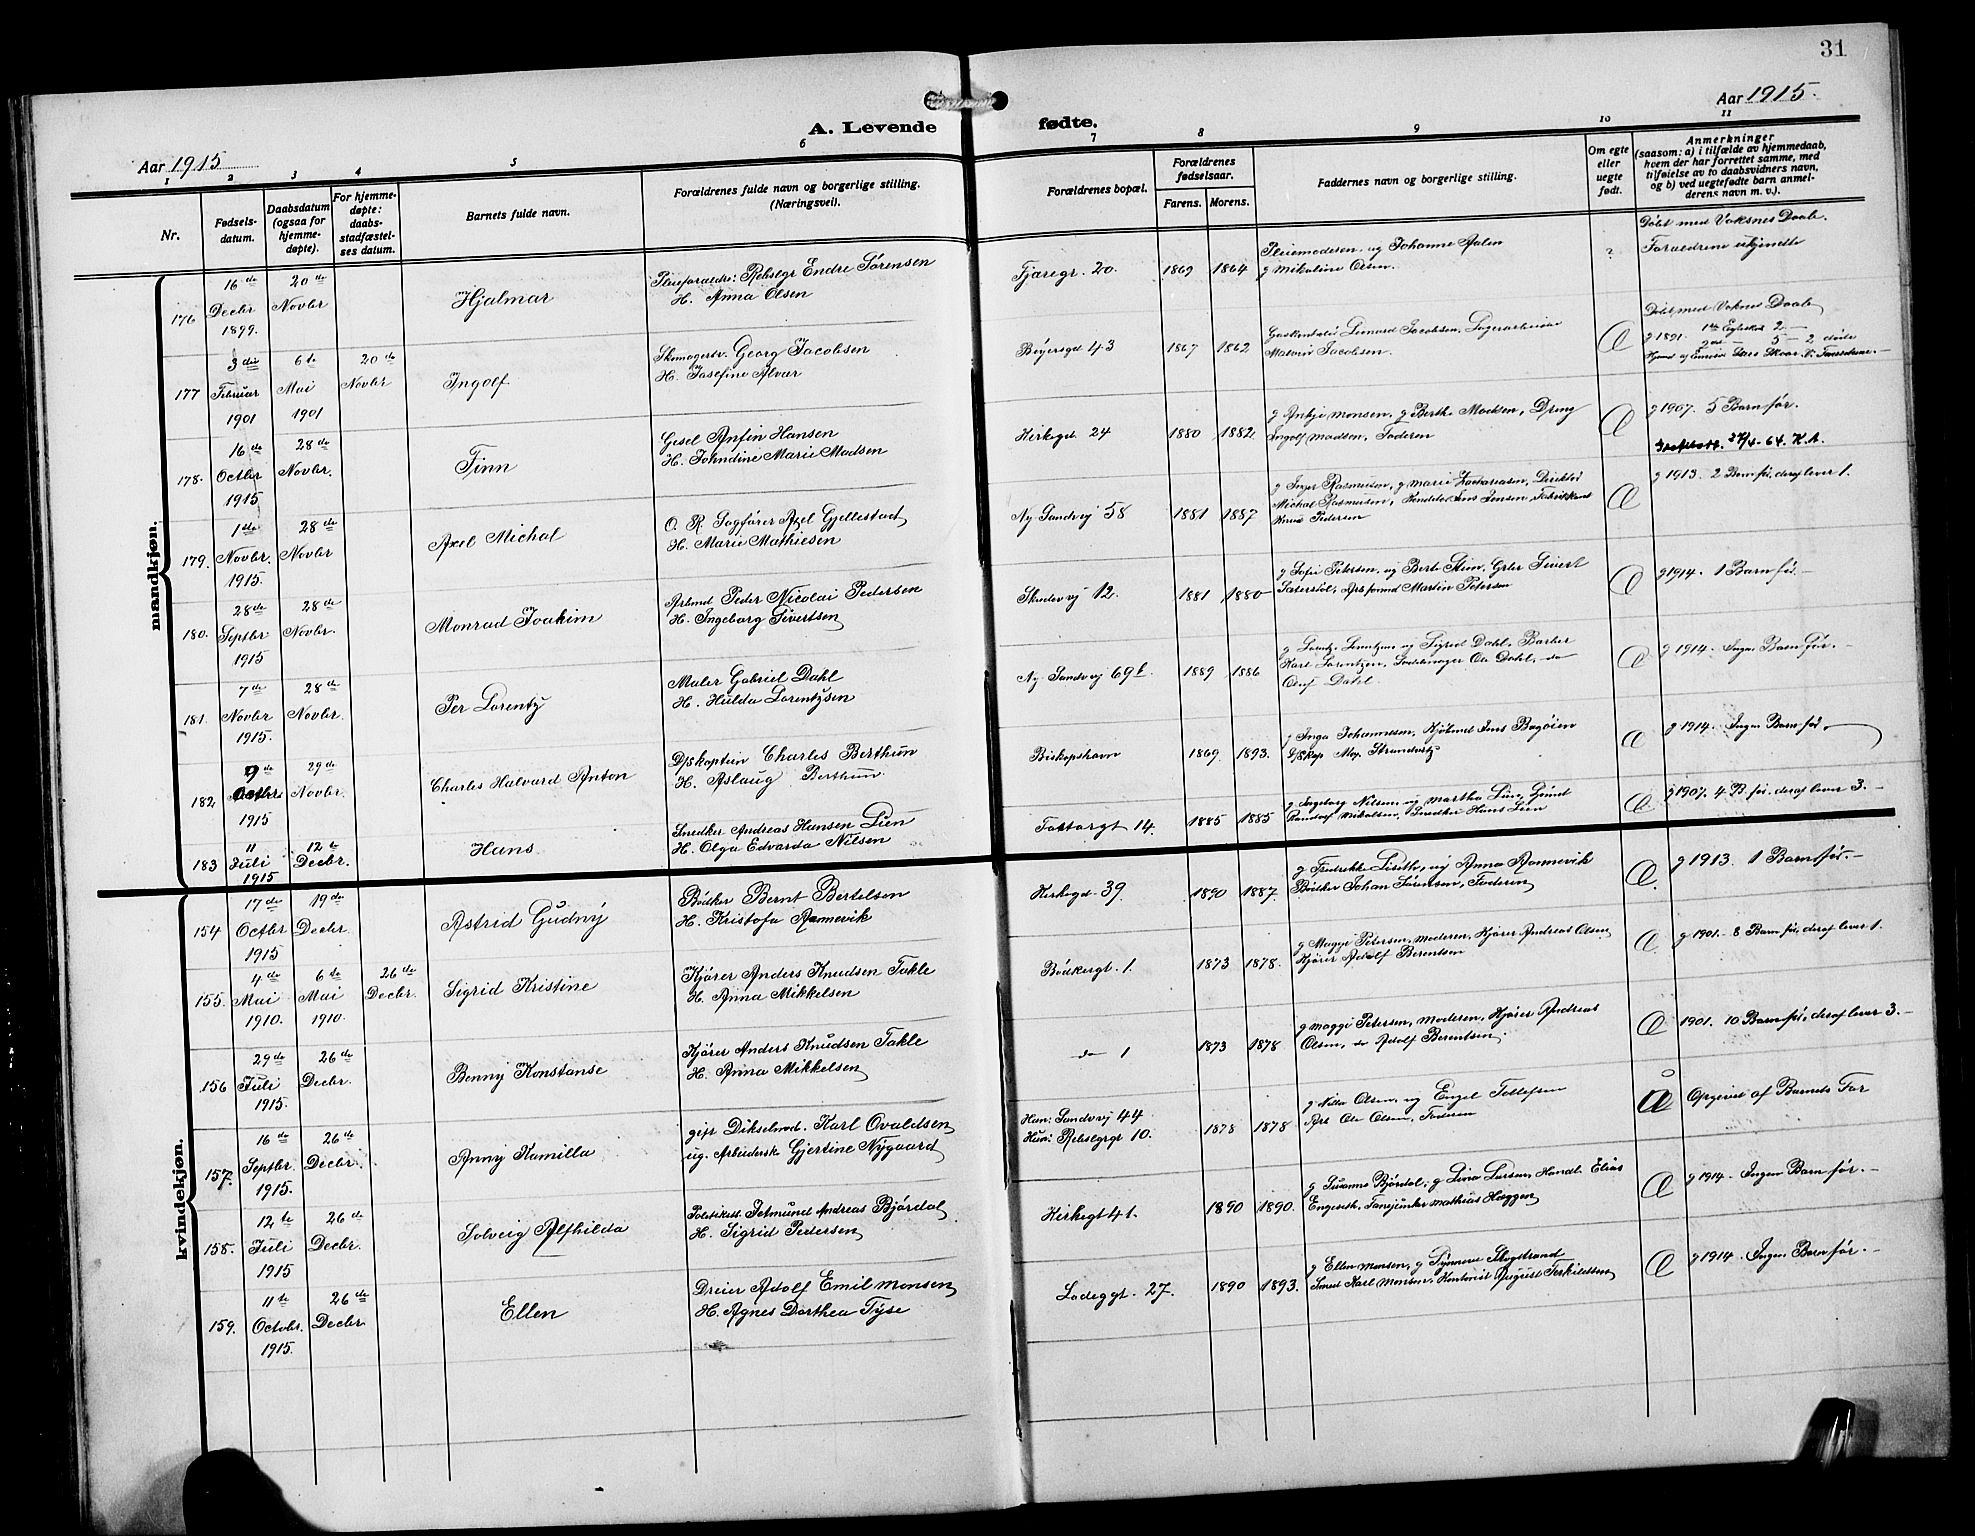 31
Aar 1915.
A. Levende fødte.
Aar 1915
1 2 3 4 5 6 7 8 9 10 11
Nr.
Fødsels-
datum.
Daabsdatum
(ogsaa for
hjemme-
døpte).
For hjemme-
døpte:
daabs-
stadfæstel-
ses datum.
Barnets fulde navn.
Forældrenes fulde navn og borgerlige stilling.
(Næringsvei).
Forældrenes bopæl.
Forældrenes
fødselsaar.
Farens. Morens.
Faddernes navn og borgerlige stilling.
Om egte
eller
uegte
født.
Anmerkninger
(saasom: a) i tilfælde av hjemmedaab,
hvem der har forrettet samme, med
tilføielse av to daabsvidners navn,
og b) ved uegtefødte barn anmel-
derens navn m. v.).
mandkjøn.
176
16de
Decbr
1899.
20de
Novbr
Hjalmar
Pleieforældre: Rebslgr Endre Sørensen
H. Anna Olsen
Tjæregr. 20.
1869 1864
Pleiemoderen, og Johanne Aalen
g Mikaline Olsen.
?
Døbt med Voksnes Daab.
Forældrene ukjendte
177
3die
Februar
1901
6te
Mai
1901
20de
Novbr
Ingolf
Skomagersv. Georg Jacobsen
H. Josefine Alvær
Beyersgd 43
1867 1862
Jacobsen, Lagerarbeider
Jacobsen.
Æ
Døbt med Voksnes Daab
g 1891.
178.
16de
Octbr
1915
28de
Novbr.
Finn
Gesel Anfin Hansen
H. Johndine Marie Madsen
Kirkegd. 24
1880 1882.
g Antje Monsen, g Berthe Madsen, Dreng
Ingolf Madsen, Faderen
Æ
g 1907. 5 Barn før.
179.
1ste
Novbr.
1915.
28de
Novbr
Axel Michal
O. R. Sagfører Axel Gjellestad
H. Marie Mathiesen
Ny Sandvj 58
1881 1887
g Inger Rasmussen, g Marie Zachariasen, Direktør
Michal Rasmussen, Jens Jensen Fabrikant
Pedersen
Æ
g 1913. 2 Barn før, deraf lever 1.
180.
28de
Septbr
1915
28de
Novbr.
Monrad Joakim
Arbmd Peder Nicolai Pedersen
H. Ingeborg Sivertsen
Skudevj 12.
1881 1880
g Sofie Petersen, og Berte Steen, Sivert
Martin Petersen
Æ
g 1914. 1 Barn før.
181.
7de
Novbr
1915.
28de
Novbr.
Per Lorentz
Maler Gabriel Dahl
H. Hulda Lorentzsen
Ny Sandvj 69b.
1889 1886
g Lorentzen og Sigrid Dahl, Barber
Karl Lorentzen, Ole Dahl, do
Oluf Dahl.
Æ
g 1914. Ingen Barn før.
182
9de
Octbr
1915
29de
Novbr.
Charles Halvard Anton
D/skaptein Charles Berthun
H. Aslaug Berthun
Biskopshavn
1869 1893.
g Inga Johannesen, Kjøbmd Jens Bogøien
Æ
g 1914. Ingen Barn før.
183
11
Juli
1915
12te
Decbr.
Hans
Snedker Andreas Hansen Lien
H. Olga Edvarda Nilsen
Tartargt 14.
1885 1885
g Ingeborg Nilsen, ug Martha Lien, Gmd
Randolf Nikolsen, Snedker Hans Lien
Æ
g 1907. 4 B. før, deraf lever 3.
kvindekjøn.
154
17de
Octbr
1915
19de
Decbr.
Astrid Gudny
Bødker Bernt Bertelsen
H. Kristofa Rannevik
Kirkegd. 39.
1890 1887.
g Fredrikke Liseth, ug Anna Rannevik
Bødker Johan Sørensen, Faderen
Æ.
g 1913. 1 Barn før.
155.
4de
Mai
1910.
6te
Mai
1910.
26de
Decbr.
Sigrid Kristine
Kjører Anders Knudsen Takle
H. Anna Mikkelsen
Bødkergt. 1.
1873 1878.
g Maggi Petersen, Moderen, Kjører Andreas Olsen,
Kjører Adolf Berentsen
Æ
g 1901. 8 Barn før, deraf lever 1.
156
29de
Juli
1915.
26de
Decbr.
Benny Konstanse
Kjører Anders Knudsen Takle
H. Anna Mikkelsen
do 1
1873 1878
g Maggi Petersen, Moderen, Kjører Andreas
Olsen, do Adolf Berentsen
Æ
1901. 10 Barn før, deraf lever 3.
157.
16de
Septbr
1915.
26de
Decbr.
Anny Kamilla
gift Dikselmd. Karl Ovaldsen
ug. Arbeidersk Gjertine Nygaard
Han: Sandvj 44
Hun: Rebslgrgt 10.
1878 1878
g Nilla Olsen, ug Engel Tollefsen
Arb Ole Olsen, Faderen
U
Opgivet af Barnets Far
158.
12te
Juli
1915
26de
Decbr.
Solveig Alfhilda
Politikst. Jetmund Andreas Bjørdal
H. Sigrid Pedersen
Kirkegt 41.
1890 1890.
g Susanne Bjørdal, g Lina Larsen, Handl. Elias
Engeseth, Fanejunker Mathias Haggen
Æ
g 1914. Ingen Barn før.
159.
11te
Octobr.
1915.
26de
Decbr.
Ellen
Dreier Adolf Emil Monsen
H. Agnes Dorthea Tyse
Ladeggt. 27.
1890 1893.
g Ellen Monsen, g Synneve Skogstrand
Smed Karl Monsen, Kontorist August Terkildsen
Æ
g 1914. Ingen Barn før.